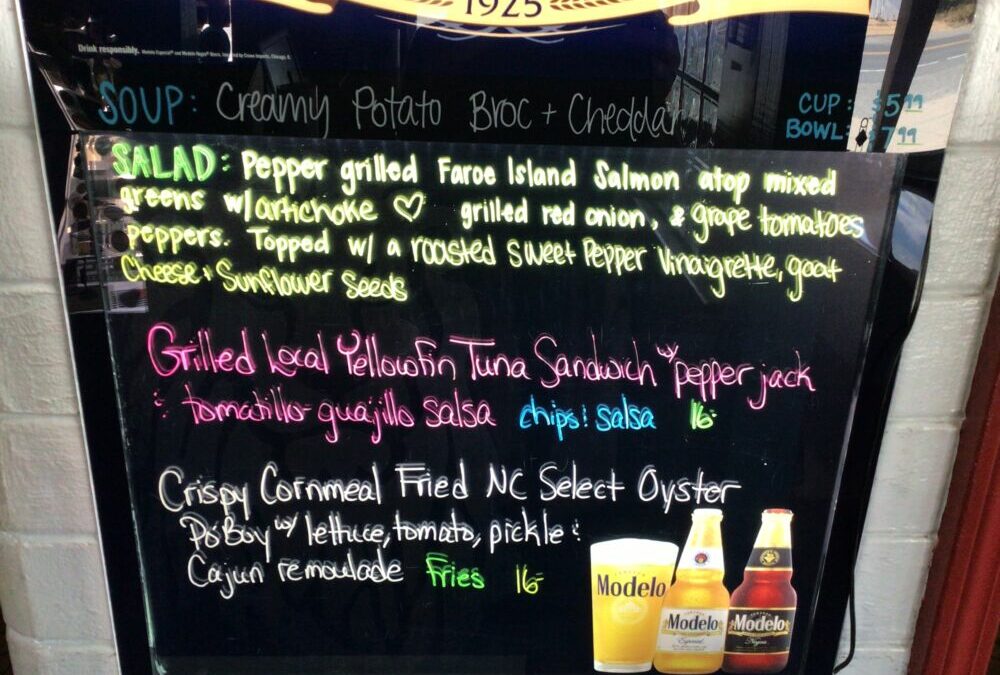 1925
Drink responsibly.
SOUP: Creamy Potato Broc + Cheddar
CUP: $5.99
BOWL: $7.99
SALAD: Pepper grilled Faroe Island Salmon atop mixed
greens w/artichoke ♡ grilled red onion, & grape tomatoes
peppers. Topped w/ a roasted Sweet Pepper Vinaigrette, goat
Cheese + Sunflower Seeds
Grilled Local Yellowfin Tuna Sandwich w/ pepper jack
tomatillo-guajillo salsa chips: salsa 16-
Crispy Cornmeal Fried NC Select Oyster
Po'Boy w/ lettuce, tomato, pickle :
Cajun remoulade Fries 16-
Modelo
Modelo
Especial
Modelo
Negra